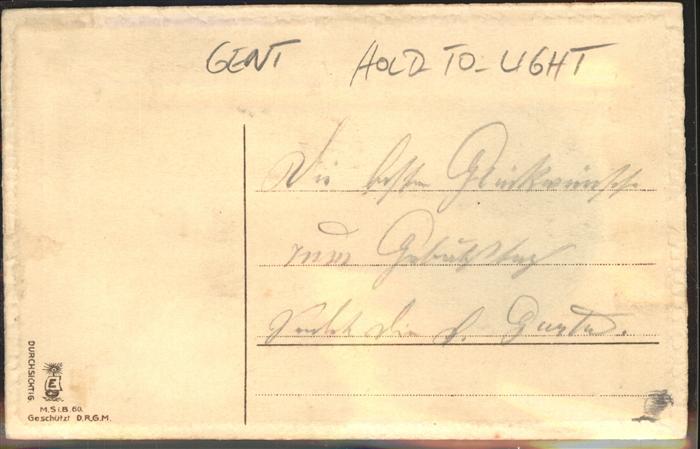 GENT HOLD-TO-LIGHT
Die besten Glückwünsche
zum Geburtstag
sendet Dir
DURCHSICHTIG
M.S.i.B. 60.
Geschützt D.R.G.M.